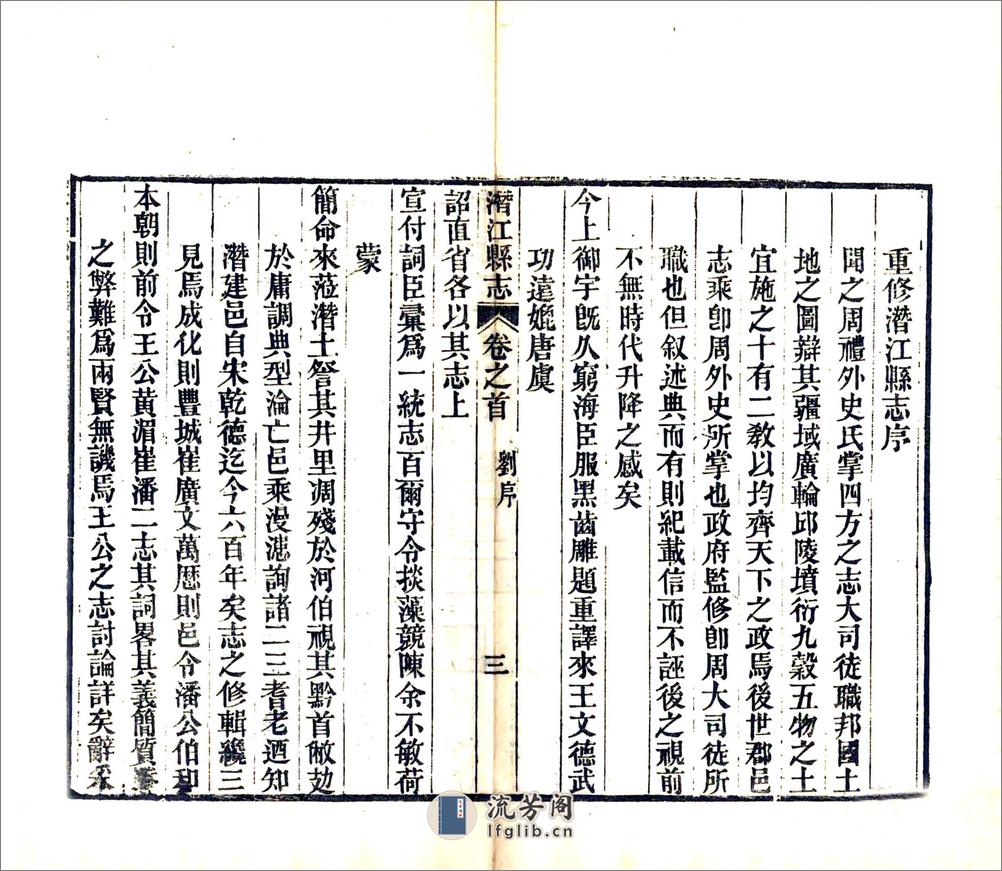 重修潛江縣志序
聞之周禮外史氏掌四方之志大司徒職邦國土
地之圖辯其疆域廣輪邱陵墳衍九穀五物之土
宜施之十有二教以均齊天下之政焉後世郡邑
志乘卽周外史所掌也政府監修卽周大司徒所
職也但叙述典而有則紀載信而不誣後之視前
不無時代升降之感矣
今上御宇旣久窮海臣服黑齒雕題重譯來王文德武
功遠媲唐虞
潛江縣志 卷之首 劉序 三
詔直省各以其志上
宣付詞臣彙爲一統志百爾守令掞藻競陳余不敏荷
蒙
簡命來蒞潛土詧其井里凋殘於河伯視其黔首敝攰
於庸調典型淪亡邑乘漫漶詢諸二三耆老迺知
潛建邑自宋乾德迄今六百年矣志之修輯纔三
見焉成化則豐城崔廣文萬曆則邑令潘公伯和
本朝則前令王公黃湄崔潘二志其詞畧其義簡質
之弊難爲兩賢無譏焉王公之志討論詳矣辭
流芳阁
lfglib.cn